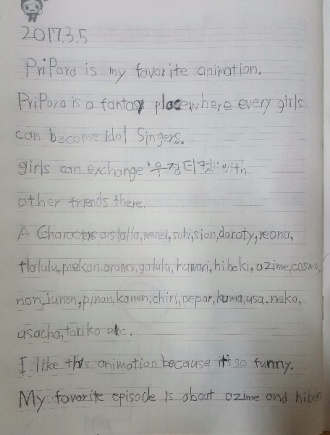 2017.3.5
PriPara is my favorite animation.
PriPara is a fantasy place where every girls
can become Idol Singers.
girls can exchange '우정티켓' with
other friends there.
A Characters are lalla, mirei, sion, doroty, reona,
falulu, aroma, gafulu, hibiki, ozime, cosmo,
non, junon, pinon, kanon, chiri, pepar, kuma, usa, neko,
asacha, toriko etc.
I like this animation because it's so funny.
My favorite episode is about ozime and hibiki